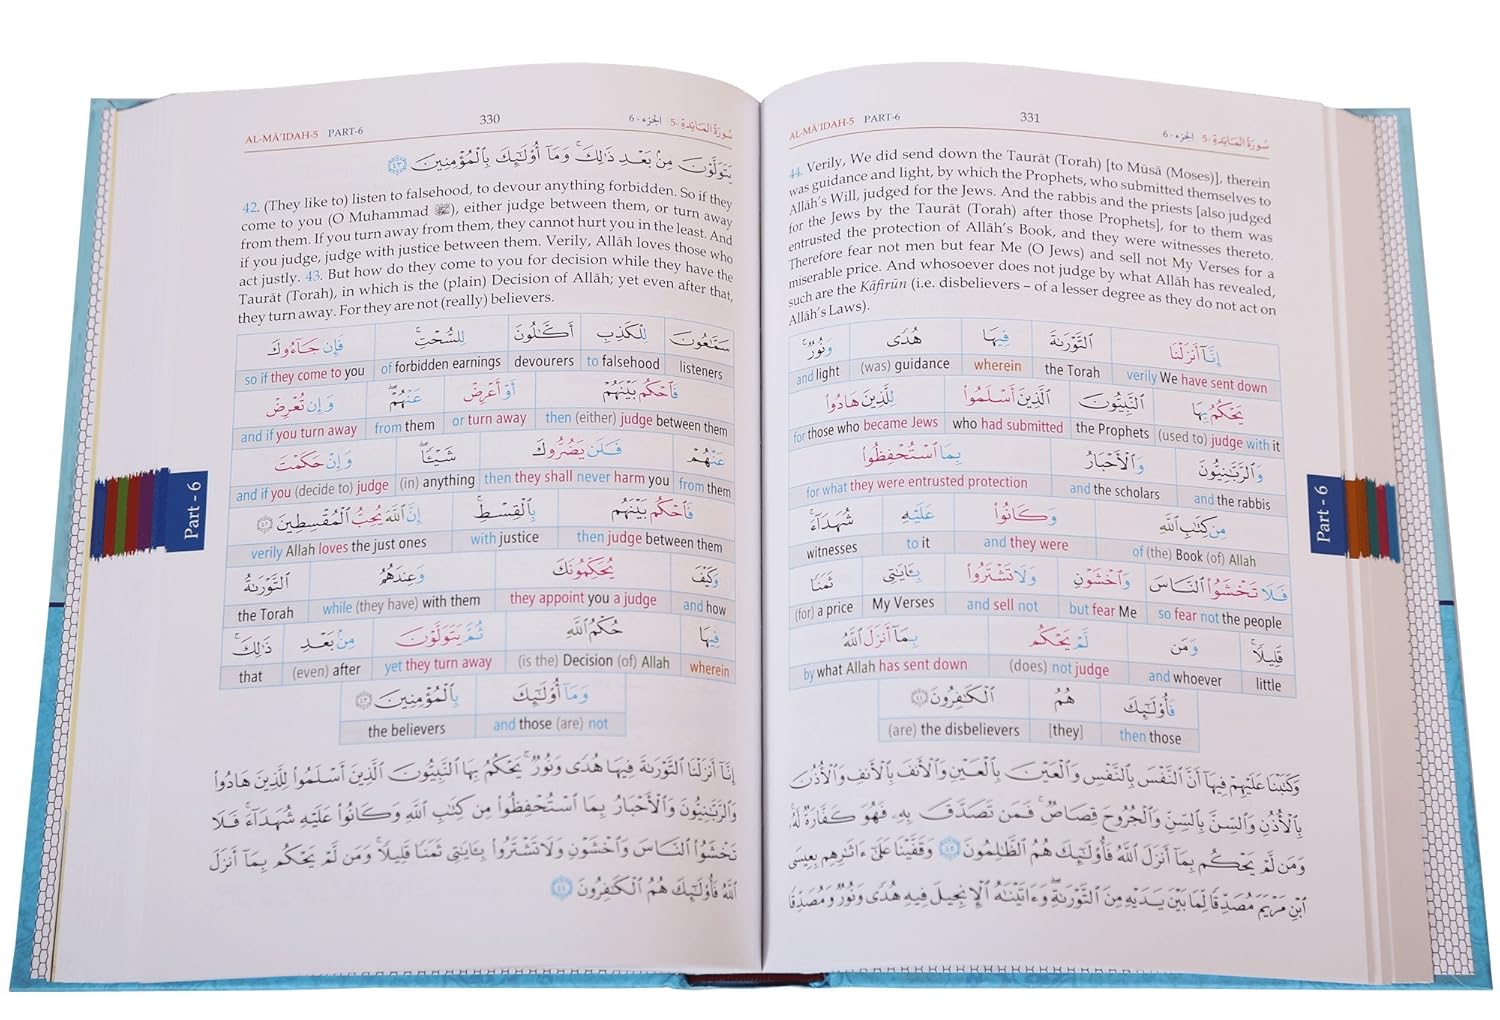 AL-MĀ'IDAH-5 PART-6 330 الجزء-6 سُورَةُ المَائِدَةِ -5
يَتَوَلَّوْنَ مِنۢ بَعْدِ ذَٰلِكَ ۚ وَمَآ أُوْلَـٰٓئِكَ بِٱلْمُؤْمِنِينَ ٤٣
42. (They like to) listen to falsehood, to devour anything forbidden. So if they
come to you (O Muhammad ﷺ), either judge between them, or turn away
from them. If you turn away from them, they cannot hurt you in the least. And
if you judge, judge with justice between them. Verily, Allāh loves those who
act justly. 43. But how do they come to you for decision while they have the
Taurāt (Torah), in which is the (plain) Decision of Allāh; yet even after that,
they turn away. For they are not (really) believers.
سَمَّـٰعُونَ لِلْكَذِبِ أَكَّـٰلُونَ لِلسُّحْتِ ۚ فَإِن جَآءُوكَ
so if they come to you of forbidden earnings devourers to falsehood listeners
فَٱحْكُم بَيْنَهُمْ أَوْ أَعْرِضْ عَنْهُمْ ۖ وَإِن تُعْرِضْ
and if you turn away from them or turn away then (either) judge between them
عَنْهُمْ فَلَن يَضُرُّوكَ شَيْـًٔا ۖ وَإِنْ حَكَمْتَ
and if you (decide to) judge (in) anything then they shall never harm you from them
فَٱحْكُم بَيْنَهُم بِٱلْقِسْطِ ۚ إِنَّ ٱللَّهَ يُحِبُّ ٱلْمُقْسِطِينَ ٤٢
verily Allah loves the just ones with justice then judge between them
وَكَيْفَ يُحَكِّمُونَكَ وَعِندَهُمُ ٱلتَّوْرَىٰةُ
the Torah while (they have) with them they appoint you a judge and how
فِيهَا حُكْمُ ٱللَّهِ ثُمَّ يَتَوَلَّوْنَ مِنۢ بَعْدِ ذَٰلِكَ ۚ
that (even) after yet they turn away (is the) Decision (of) Allah wherein
وَمَآ أُوْلَـٰٓئِكَ بِٱلْمُؤْمِنِينَ ٤٣
the believers and those (are) not
إِنَّآ أَنزَلْنَا ٱلتَّوْرَىٰةَ فِيهَا هُدًى وَنُورٌ ۚ يَحْكُمُ بِهَا ٱلنَّبِيُّونَ ٱلَّذِينَ أَسْلَمُوا۟ لِلَّذِينَ هَادُوا۟
وَٱلرَّبَّـٰنِيُّونَ وَٱلْأَحْبَارُ بِمَا ٱسْتُحْفِظُوا۟ مِن كِتَـٰبِ ٱللَّهِ وَكَانُوا۟ عَلَيْهِ شُهَدَآءَ ۚ فَلَا
تَخْشَوُا۟ ٱلنَّاسَ وَٱخْشَوْنِ وَلَا تَشْتَرُوا۟ بِـَٔايَـٰتِى ثَمَنًا قَلِيلًا ۚ وَمَن لَّمْ يَحْكُم بِمَآ أَنزَلَ
ٱللَّهُ فَأُوْلَـٰٓئِكَ هُمُ ٱلْكَـٰفِرُونَ ٤٤
Part - 6
AL-MĀ'IDAH-5 PART-6 331 الجزء-6 سُورَةُ المَائِدَةِ -5
44. Verily, We did send down the Taurāt (Torah) [to Mūsā (Moses)], therein
was guidance and light, by which the Prophets, who submitted themselves to
Allāh's Will, judged for the Jews. And the rabbis and the priests [also judged
for the Jews by the Taurāt (Torah) after those Prophets], for to them was
entrusted the protection of Allāh's Book, and they were witnesses thereto.
Therefore fear not men but fear Me (O Jews) and sell not My Verses for a
miserable price. And whosoever does not judge by what Allāh has revealed,
such are the Kāfirūn (i.e. disbelievers – of a lesser degree as they do not act on
Allāh's Laws).
إِنَّآ أَنزَلْنَا ٱلتَّوْرَىٰةَ فِيهَا هُدًى وَنُورٌ ۚ
and light (was) guidance wherein the Torah verily We have sent down
يَحْكُمُ بِهَا ٱلنَّبِيُّونَ ٱلَّذِينَ أَسْلَمُوا۟ لِلَّذِينَ هَادُوا۟
for those who became Jews who had submitted the Prophets (used to) judge with it
وَٱلرَّبَّـٰنِيُّونَ وَٱلْأَحْبَارُ بِمَا ٱسْتُحْفِظُوا۟
for what they were entrusted protection and the scholars and the rabbis
مِن كِتَـٰبِ ٱللَّهِ وَكَانُوا۟ عَلَيْهِ شُهَدَآءَ ۚ
witnesses to it and they were of (the) Book (of) Allah
فَلَا تَخْشَوُا۟ ٱلنَّاسَ وَٱخْشَوْنِ وَلَا تَشْتَرُوا۟ بِـَٔايَـٰتِى ثَمَنًا
(for) a price My Verses and sell not but fear Me so fear not the people
قَلِيلًا ۚ وَمَن لَّمْ يَحْكُم بِمَآ أَنزَلَ ٱللَّهُ
by what Allah has sent down (does) not judge and whoever little
فَأُوْلَـٰٓئِكَ هُمُ ٱلْكَـٰفِرُونَ ٤٤
(are) the disbelievers [they] then those
وَكَتَبْنَا عَلَيْهِمْ فِيهَآ أَنَّ ٱلنَّفْسَ بِٱلنَّفْسِ وَٱلْعَيْنَ بِٱلْعَيْنِ وَٱلْأَنفَ بِٱلْأَنفِ وَٱلْأُذُنَ
بِٱلْأُذُنِ وَٱلسِّنَّ بِٱلسِّنِّ وَٱلْجُرُوحَ قِصَاصٌ ۚ فَمَن تَصَدَّقَ بِهِۦ فَهُوَ كَفَّارَةٌ لَّهُۥ ۚ
وَمَن لَّمْ يَحْكُم بِمَآ أَنزَلَ ٱللَّهُ فَأُوْلَـٰٓئِكَ هُمُ ٱلظَّـٰلِمُونَ ٤٥ وَقَفَّيْنَا عَلَىٰٓ ءَاثَـٰرِهِم بِعِيسَى
ٱبْنِ مَرْيَمَ مُصَدِّقًا لِّمَا بَيْنَ يَدَيْهِ مِنَ ٱلتَّوْرَىٰةِ ۖ وَءَاتَيْنَـٰهُ ٱلْإِنجِيلَ فِيهِ هُدًى وَنُورٌ وَمُصَدِّقًا
Part - 6